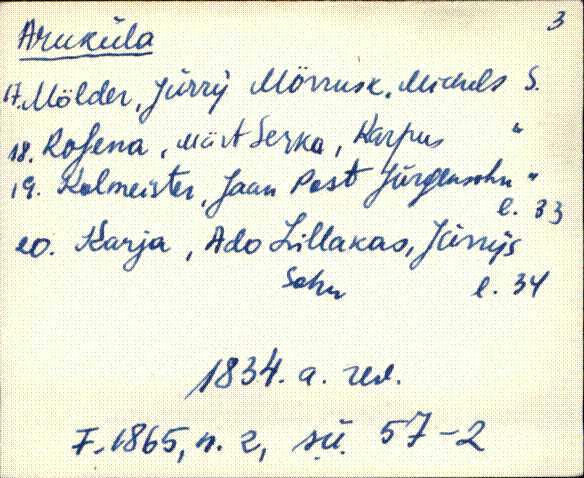 3
Aruküla
17. Mölder, Jürry Mörrusk, Michels S.
18. Rosena, Märt Serka, Karpus "
19. Kolmeister, Jaan Post Jürgensohn "
l. 33
20. Karja, Ado Lillakas, Jürrys
Sohn l. 34
1834. a. rev.
F. 1865, n. 2, sü. 57-2